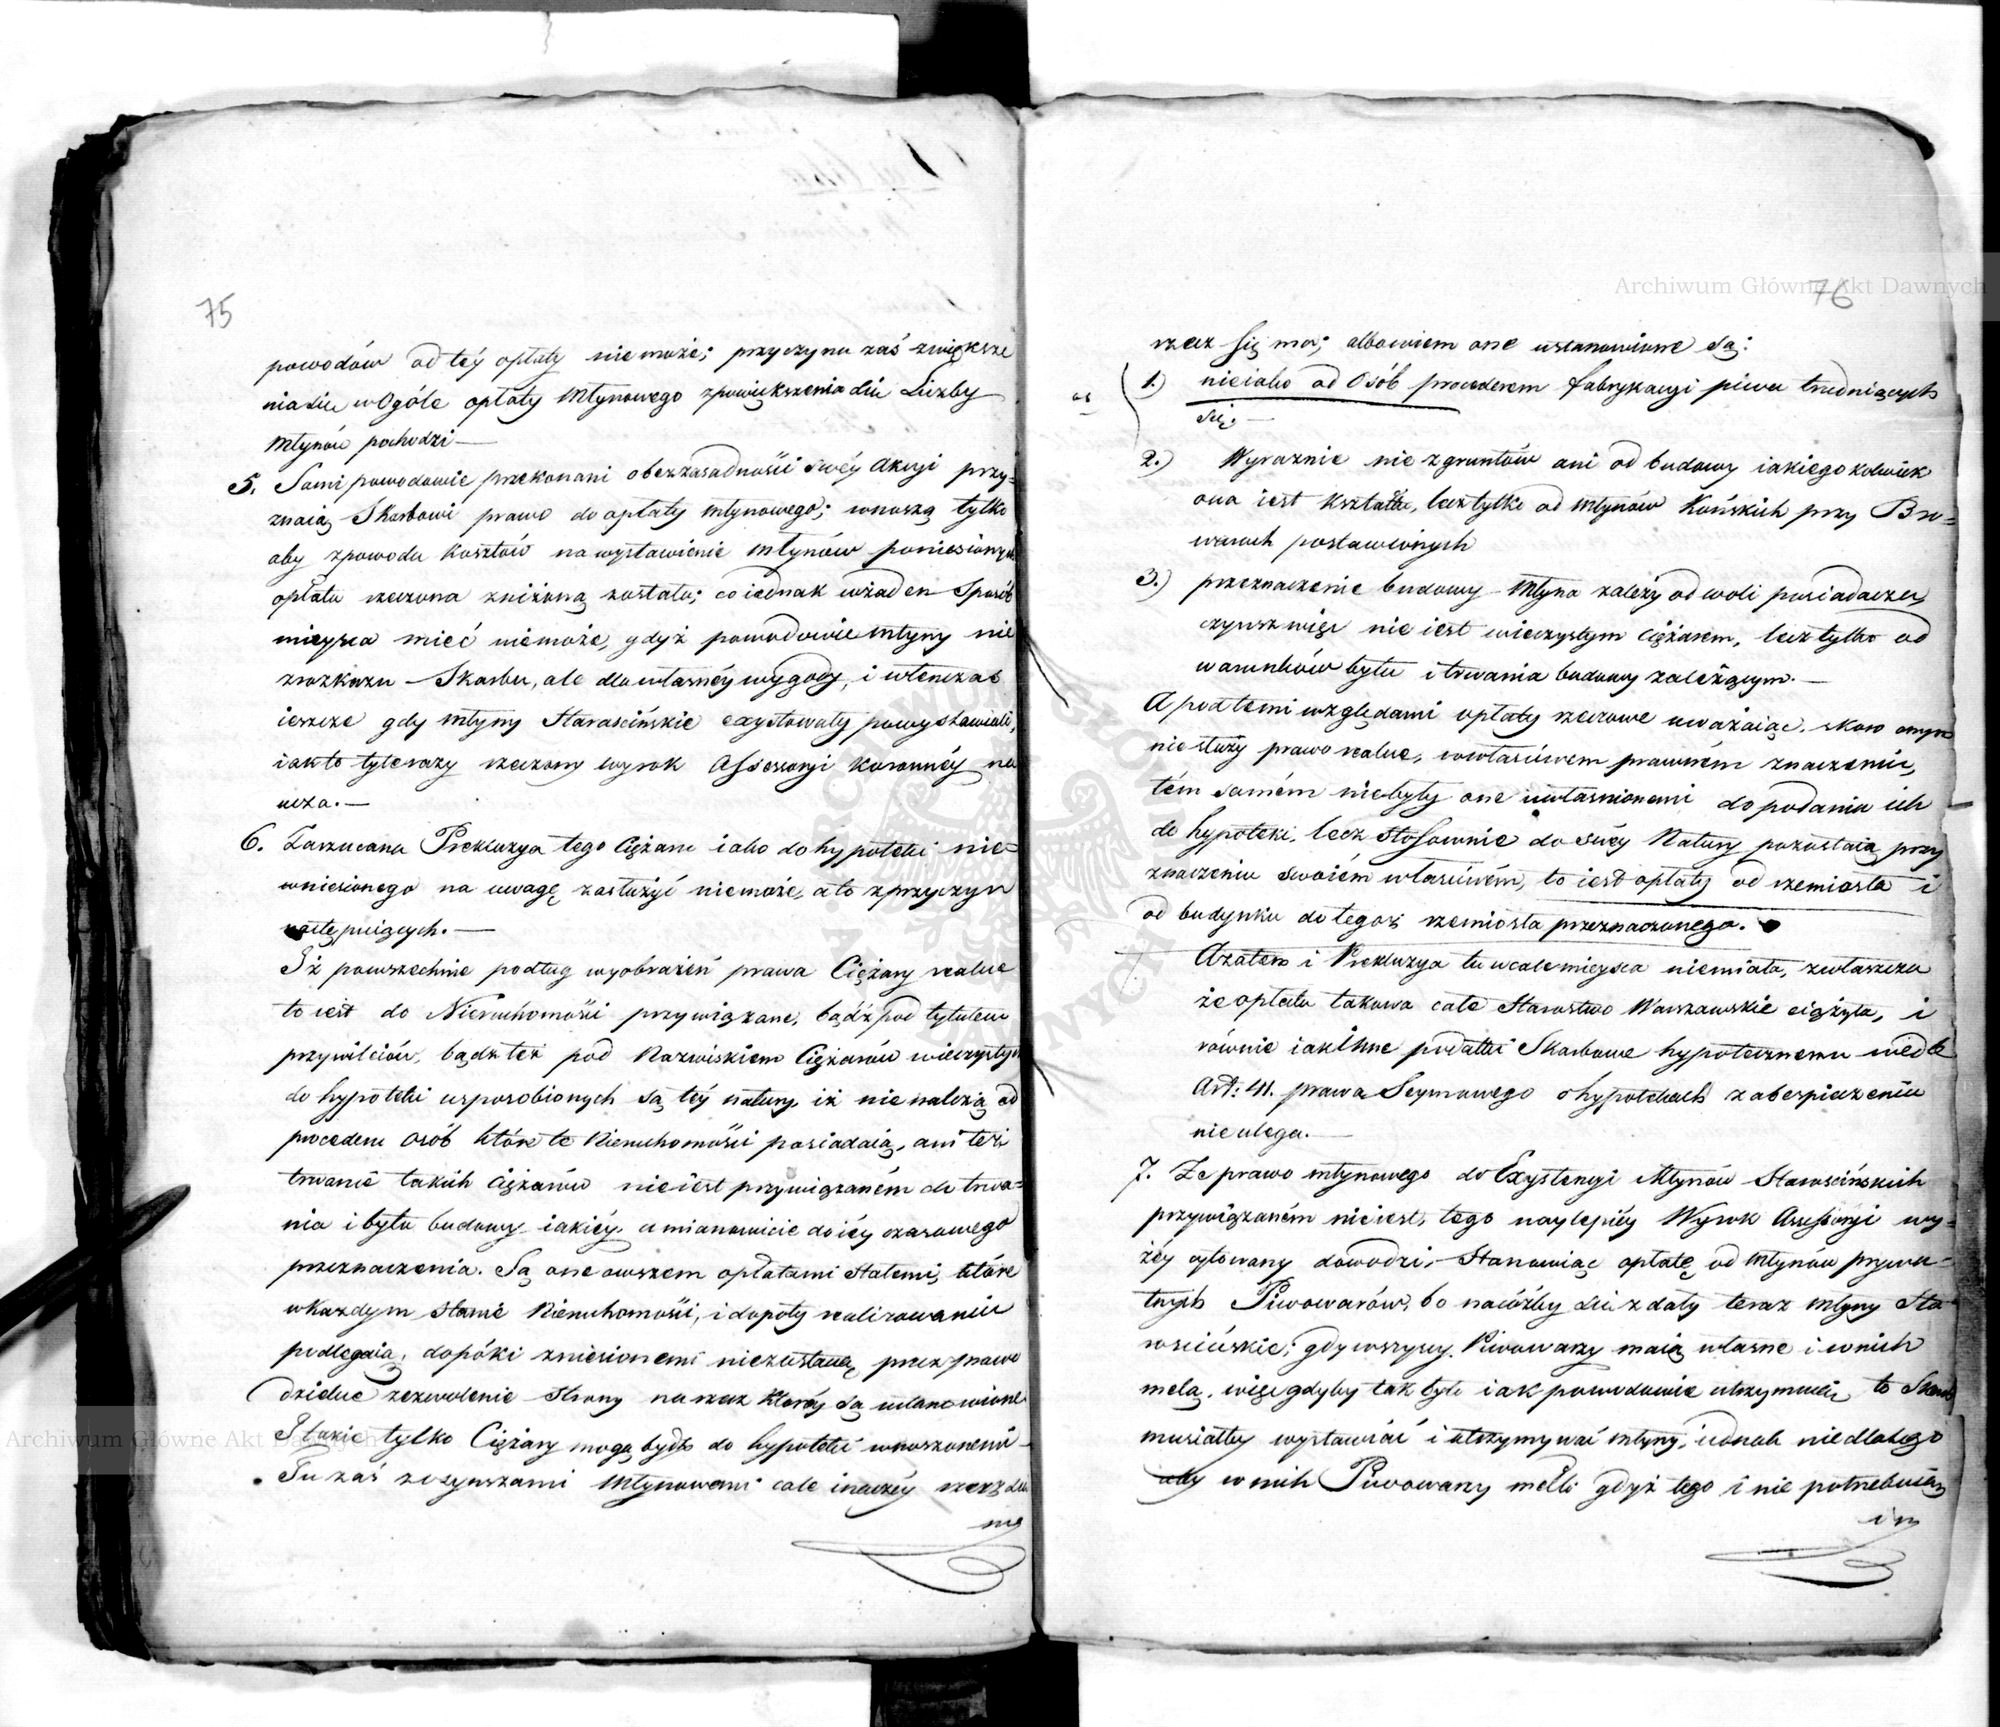 75
powodów od téy opłaty nie może; przyczyna zaś zwiększe
nia się w Ogóle opłaty Młynowego z powiększenia się Liczby
Młynów pochodzi —
5. Sami powodowie przekonani o bezzasadności swéy Akcyi przy-
znaią Skarbowi prawo do opłaty młynowego; wnoszą tylko
aby z powodu kosztów na wystawienie młynów poniesionych
opłata rzeczona zniżoną została; co iednak w żaden Sposób
mieysca mieć nie może, gdyż powodowie młyny nie
z rozkazu Skarbu, ale dla własnéy wygody, i wtenczas
ieszcze gdy młyny Starościńskie exystowały powystawiali,
iak to tylerazy rzeczony wyrok Assessoryi Koronnéy na
ucza. —
6. Zarzucana Prekluzya tego Ciężaru iako do hypoteki nie-
wniesionego na uwagę zasłużyć nie może, a to z przyczyn
następuiących. —
Iż powszechnie podług wyobrażeń prawa Ciężary realne
to iest do Nieruchomości przywiązane, bądź pod tytułem
przywileiów, bądź też pod Nazwiskiem Ciężarów wieczystych
do hypoteki usposobionych są téy natury, iż nie należą od
procederu osób które te Nieruchomości posiadaią, ani też
trwanie takich Ciężarów nie iest przywiązaném do trwa-
nia i bytu budowy iakiéy, a mianowicie do iéy czasowego
przeznaczenia. Są one owszem opłatami stałemi, które
w każdym stanie Nieruchomości, i dopóty realizowaniu
podlegaią, dopóki zniesionemi nie zostaną przez prawo
dzielne zezwolenie strony na rzecz któréy są ustanowione
Takie tylko Ciężary mogą bydź do hypoteki wnoszonemi —
Tu zaś z czynszami Młynowemi całe inaczéy rzecz się
ma
76
rzecz się ma; albowiem one ustanowione są:
1.) nieiako od Osób procederem fabrykacyi piwa trudniących
się. —
2.) Wyraznie nie z gruntów ani od budowy iakiegokolwiek
ona iest kształtu, lecz tylko od młynów Końskich przy Bro-
warach postawionych
3.) przeznaczenie budowy Młyna zależy od woli posiadacza,
czynsz więc nie iest wieczystym ciężarem, lecz tylko od
warunków bytu i trwania budowy zależącym. —
A pod temi względami opłaty rzeczowe uważaiąc, skoro onym
nie służy prawo realne, w właściwem prawném znaczeniu,
tém samém niebyły one uwłasnionemi do podania ich
do hypoteki, lecz stosownie do swéy Natury pozostaią przy
znaczeniu swoiém właściwém, to iest opłaty od rzemiosła i
od budynku do tegoż rzemiosła przeznaczonego.
A zatem i Prekluzya tu wcale mieysca niemiała, zwłaszcza
że opłata takowa całe Starostwo Warszawskie ciążyła, i
równie iak Inne podatki Skarbowe hypotecznemu wedle
Art: 41. prawa Seymowego o hypotekach zabespieczeniu
nie ulega. —
7. Że prawo młynowego do Exystencyi Młynów Starościńskich
przywiązaném nie iest, tego naylepiéy Wyrok Assessoryi wy-
żéy cytowany dowodzi, Stanowiąc opłatę od Młynów prywa-
tnych Piwowarów, bo na cóżby się zdały teraz młyny Sta-
rościńskie; gdy wszyscy Piwowarzy maią własne i w nich
melą, więc gdyby tak było iak powodowie utrzymuią, to Skarb
musiałby wystawiać i utrzymywać młyny, iednak nie dlatego
aby w nich Piwowarzy mełli gdyż tego i nie potrzebuią